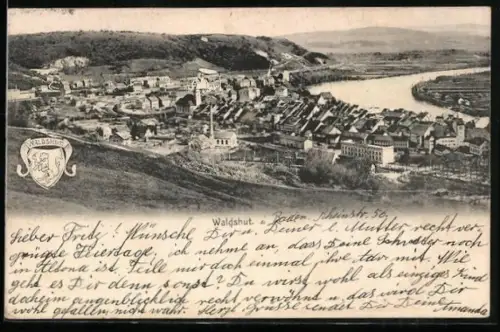 WALDSHUT
Waldshut. Baden, Rheinstr. 50,
Lieber Fritz! Wünsche Dir u. Deiner l. Mutter recht ver-
gnügte Feiertage, ich nehme an, dass Deine Schwester noch
in Altona ist, teile mir doch einmal ihre Adr. mit. Wie
geht es Dir denn sonst? Du wirst wohl als einziges Kind
daheim augenblicklich recht verwöhnt u. das wird Dir
wohl gefallen, nicht wahr. Herzl. Grüsse sendet Dir Deine Amanda